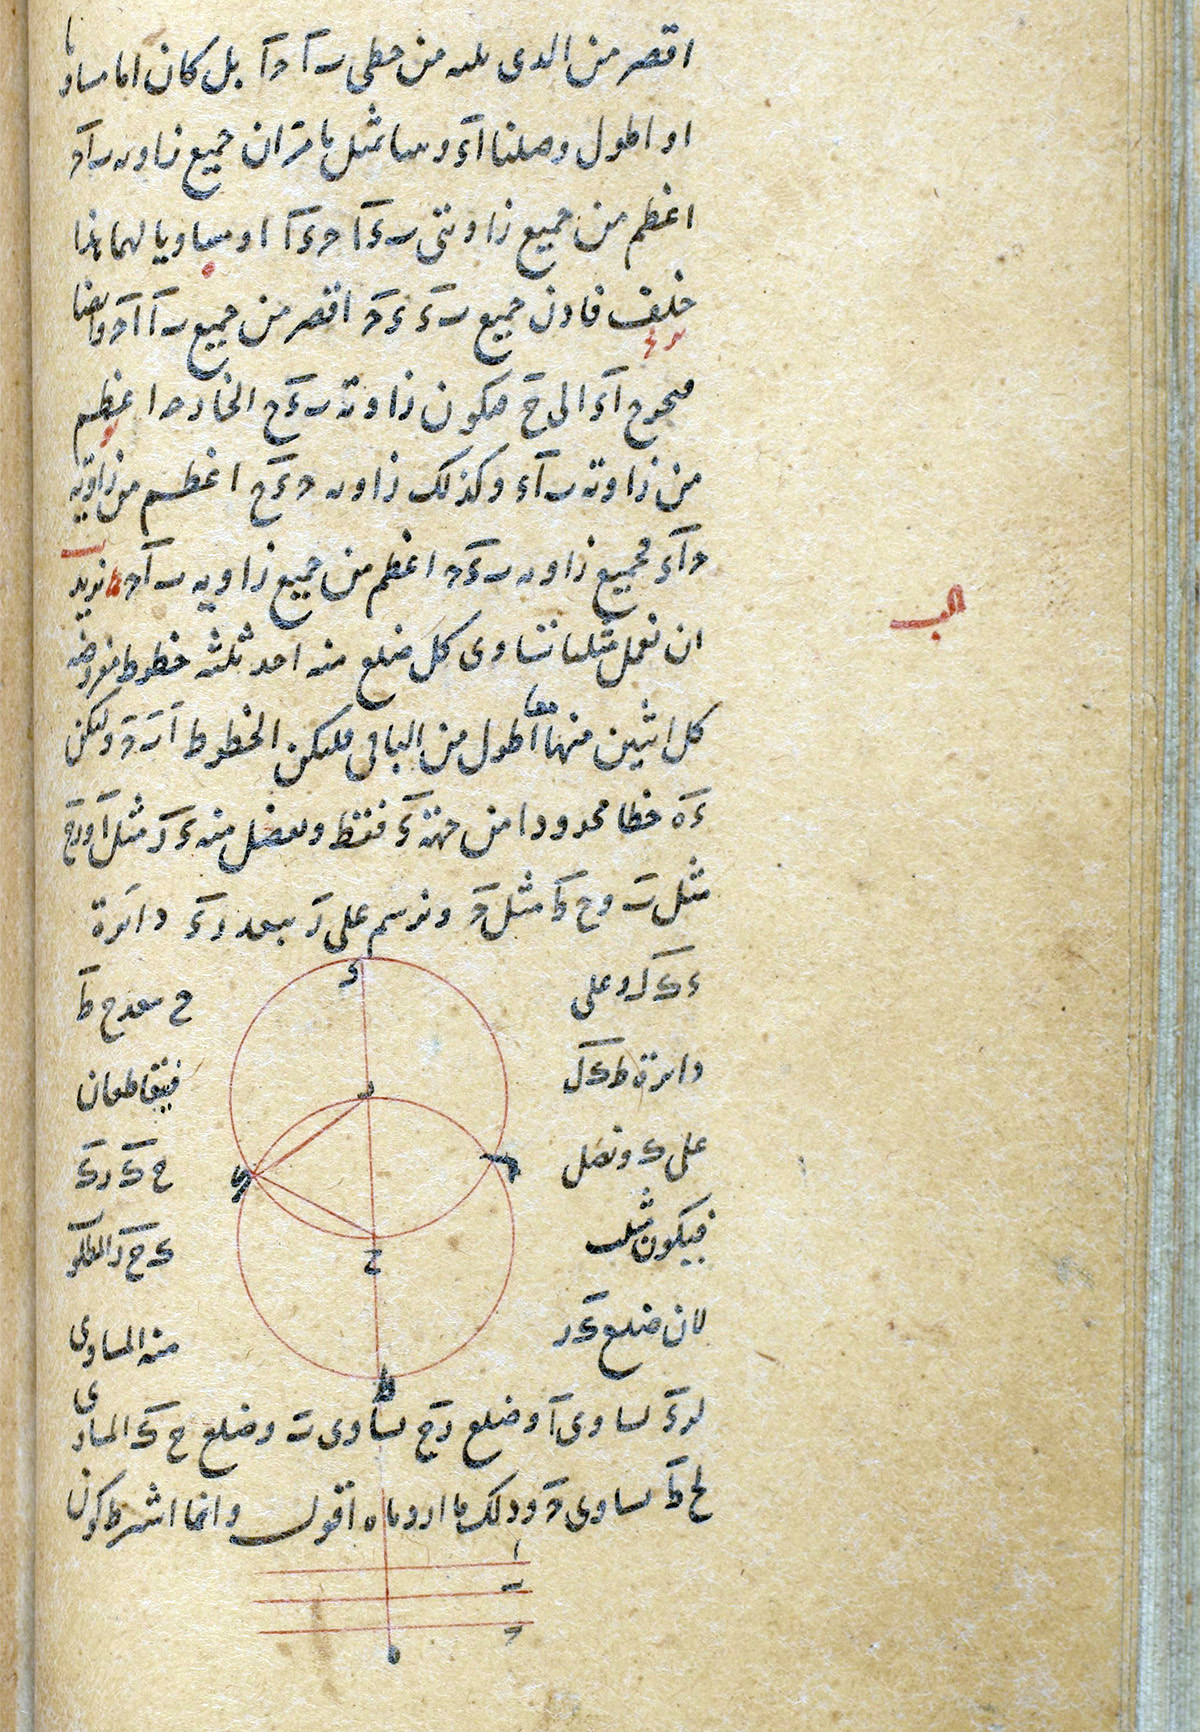 اقصر من الذى يليه من خطى ب‌آ ح‌آ بل كان اما مساويا
او اطول وصلنا آء وبينا بمثل ما مر ان جميع زاوية ب‌آح
اعظم من جميع زاويتى ب‌ء‌آ ح‌ء‌آ او مساويا لهما هذا
خلف فاذن جميع ب‌ء ء‌ح اقصر من جميع ب‌آ آح وايضا
آء الى ح فيكون زاوية ب‌ء‌ح الخارجة اعظم
من زاوية ب‌آء وكذلك زاوية ح‌ء‌ح اعظم من زاوية
ح‌آء فجميع زاوية ب‌ء‌ح اعظم من جميع زاوية ب‌آح نريد
كب
ان نعمل مثلثا يساوى كل ضلع منه احد ثلثة خطوط مفروضة
كل اثنين منها معا اطول من الباقى فليكن الخطوط آ ب ح وليكن
ء‌ه خطا محدودا من جهة ء فقط ونفصل منه ء‌ر مثل آ ورح
مثل ب وح‌ط مثل ح ونرسم على ر ببعد رء دائرة
ء‌ك‌ل وعلى ح ببعد ح‌ط
دائرة ط‌ك‌ل فيتقاطعان
على ك ونصل ح‌ك رك
فيكون مثلث ك‌ح‌ر المطلو
لان ضلع ك‌ر منه المساوى
لرء يساوى آ وضلع رح يساوى ب وضلع ح‌ك المساوى
لح‌ط يساوى ح وذلك ما اردناه اقول وانما اشترط كون
ء
ر
ل
ك
ح
ط
ا
ب
ح
ه